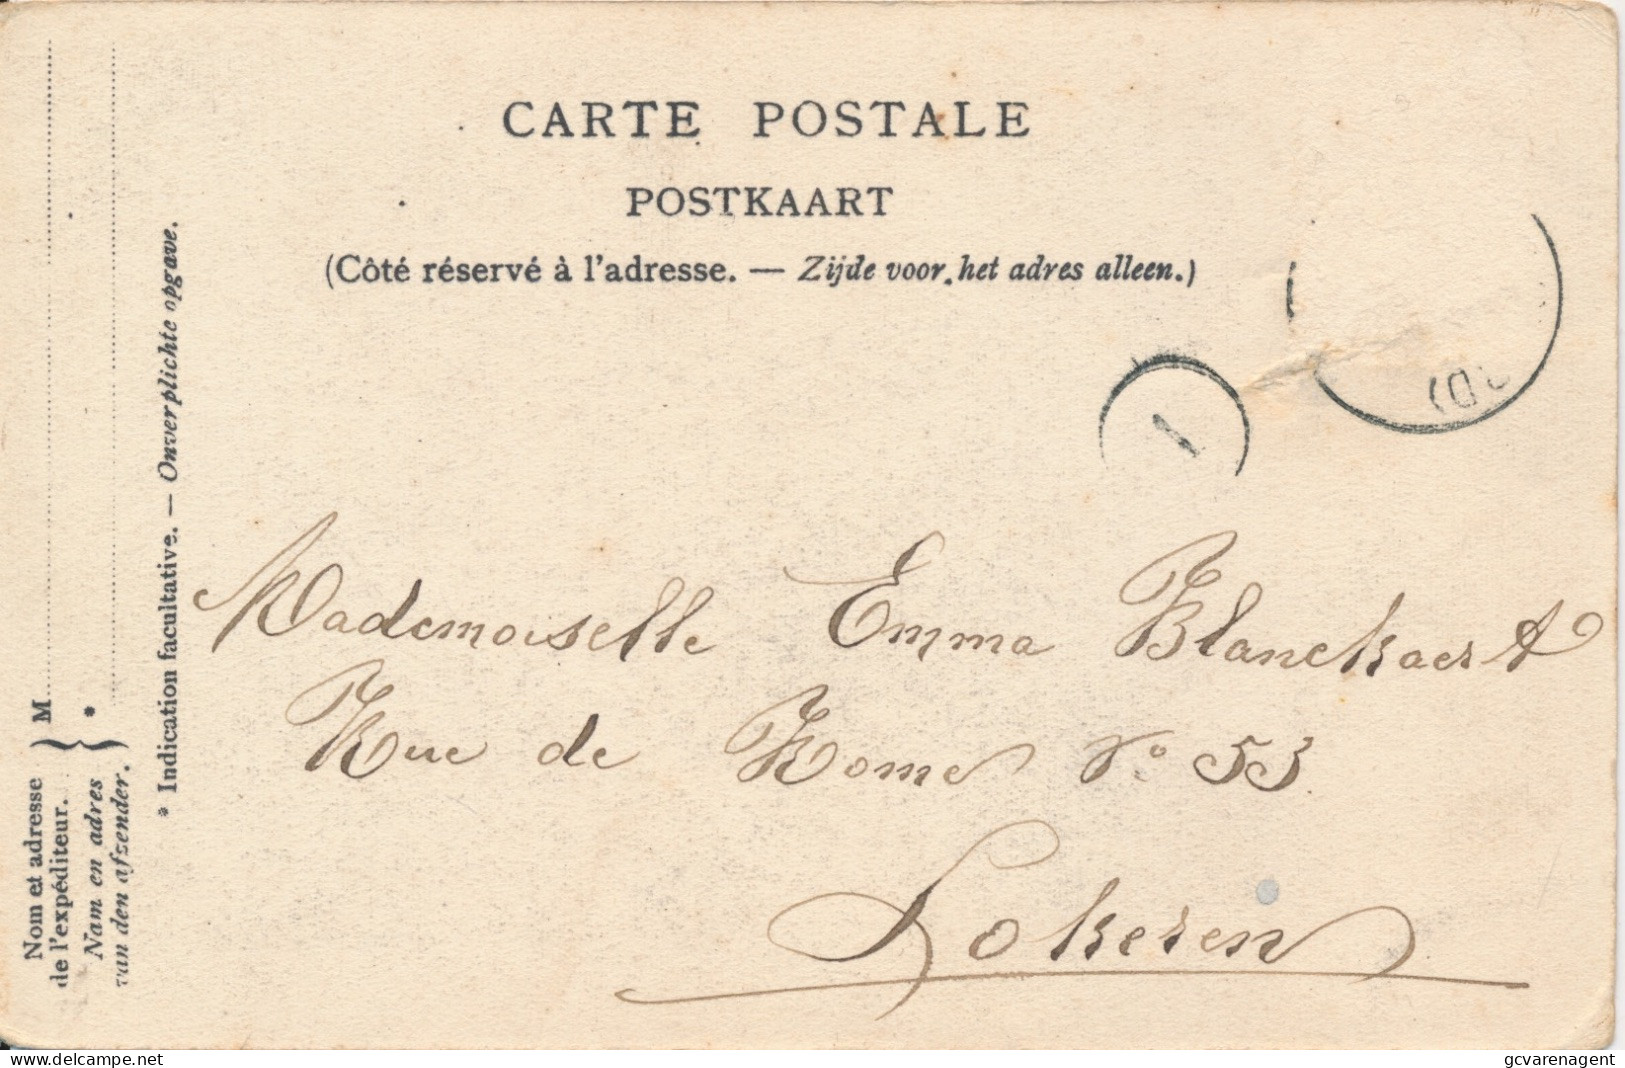 CARTE POSTALE
POSTKAART
(Côté réservé à l'adresse. — Zijde voor het adres alleen.)
1
Mademoiselle Emma Blanckaert
Rue de Rome No 53
Lokeren
Nom et adresse
de l'expéditeur.
Nam en adres
van den afzender.
M
*
* Indication facultative. — Onverplichte opgave.
www.delcampe.net
gcvarenagent